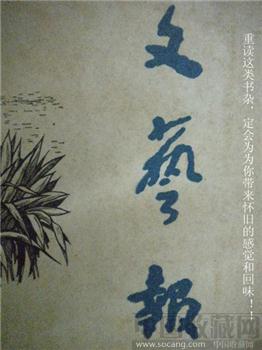 文藝報
重读这类书杂，定会为为你带来怀旧的感觉和回味！！
中国收藏网
中国收藏网
www.socang.com